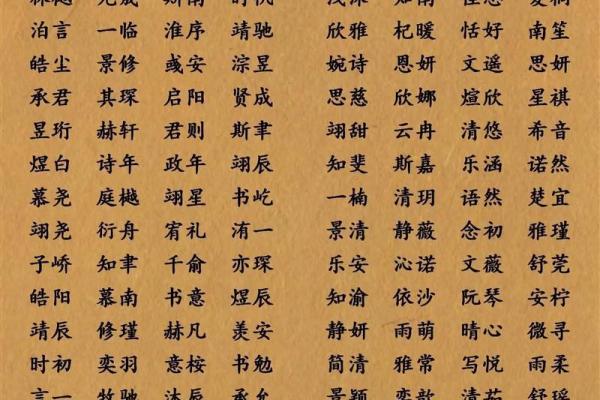 泊言 一临 淮序 靖驰 欣雅 杞暖 恬好 南笙
皓尘 景修 彧安 淙昱 婉诗 恩妍 文遥 思妍
承君 其琛 启阳 贤成 思慈 欣娜 煊欣 星祺
昱珩 赫轩 君则 斯聿 翊甜 云冉 清悠 希音
煜白 诗年 政年 翊辰 知斐 斯嘉 乐涵 诺然
慕尧 庭樾 翊星 书屹 一楠 清玥 语然 楚宜
翊尧 衍舟 宥礼 洧一 景清 静薇 念初 雅瑾
子峤 知聿 千俞 亦琛 乐安 沁诺 文薇 舒莞
皓阳 慕南 书意 煜辰 知渝 依沙 阮琴 安柠
靖辰 修瑾 赫凡 羡安 静妍 雨萌 晴心 微寻
时初 奕羽 意桉 书勉 简清 雅常 写悦 雨柔
言一 牧驰 沐辰 承允 景颖 奕歆 清茹 舒瑶